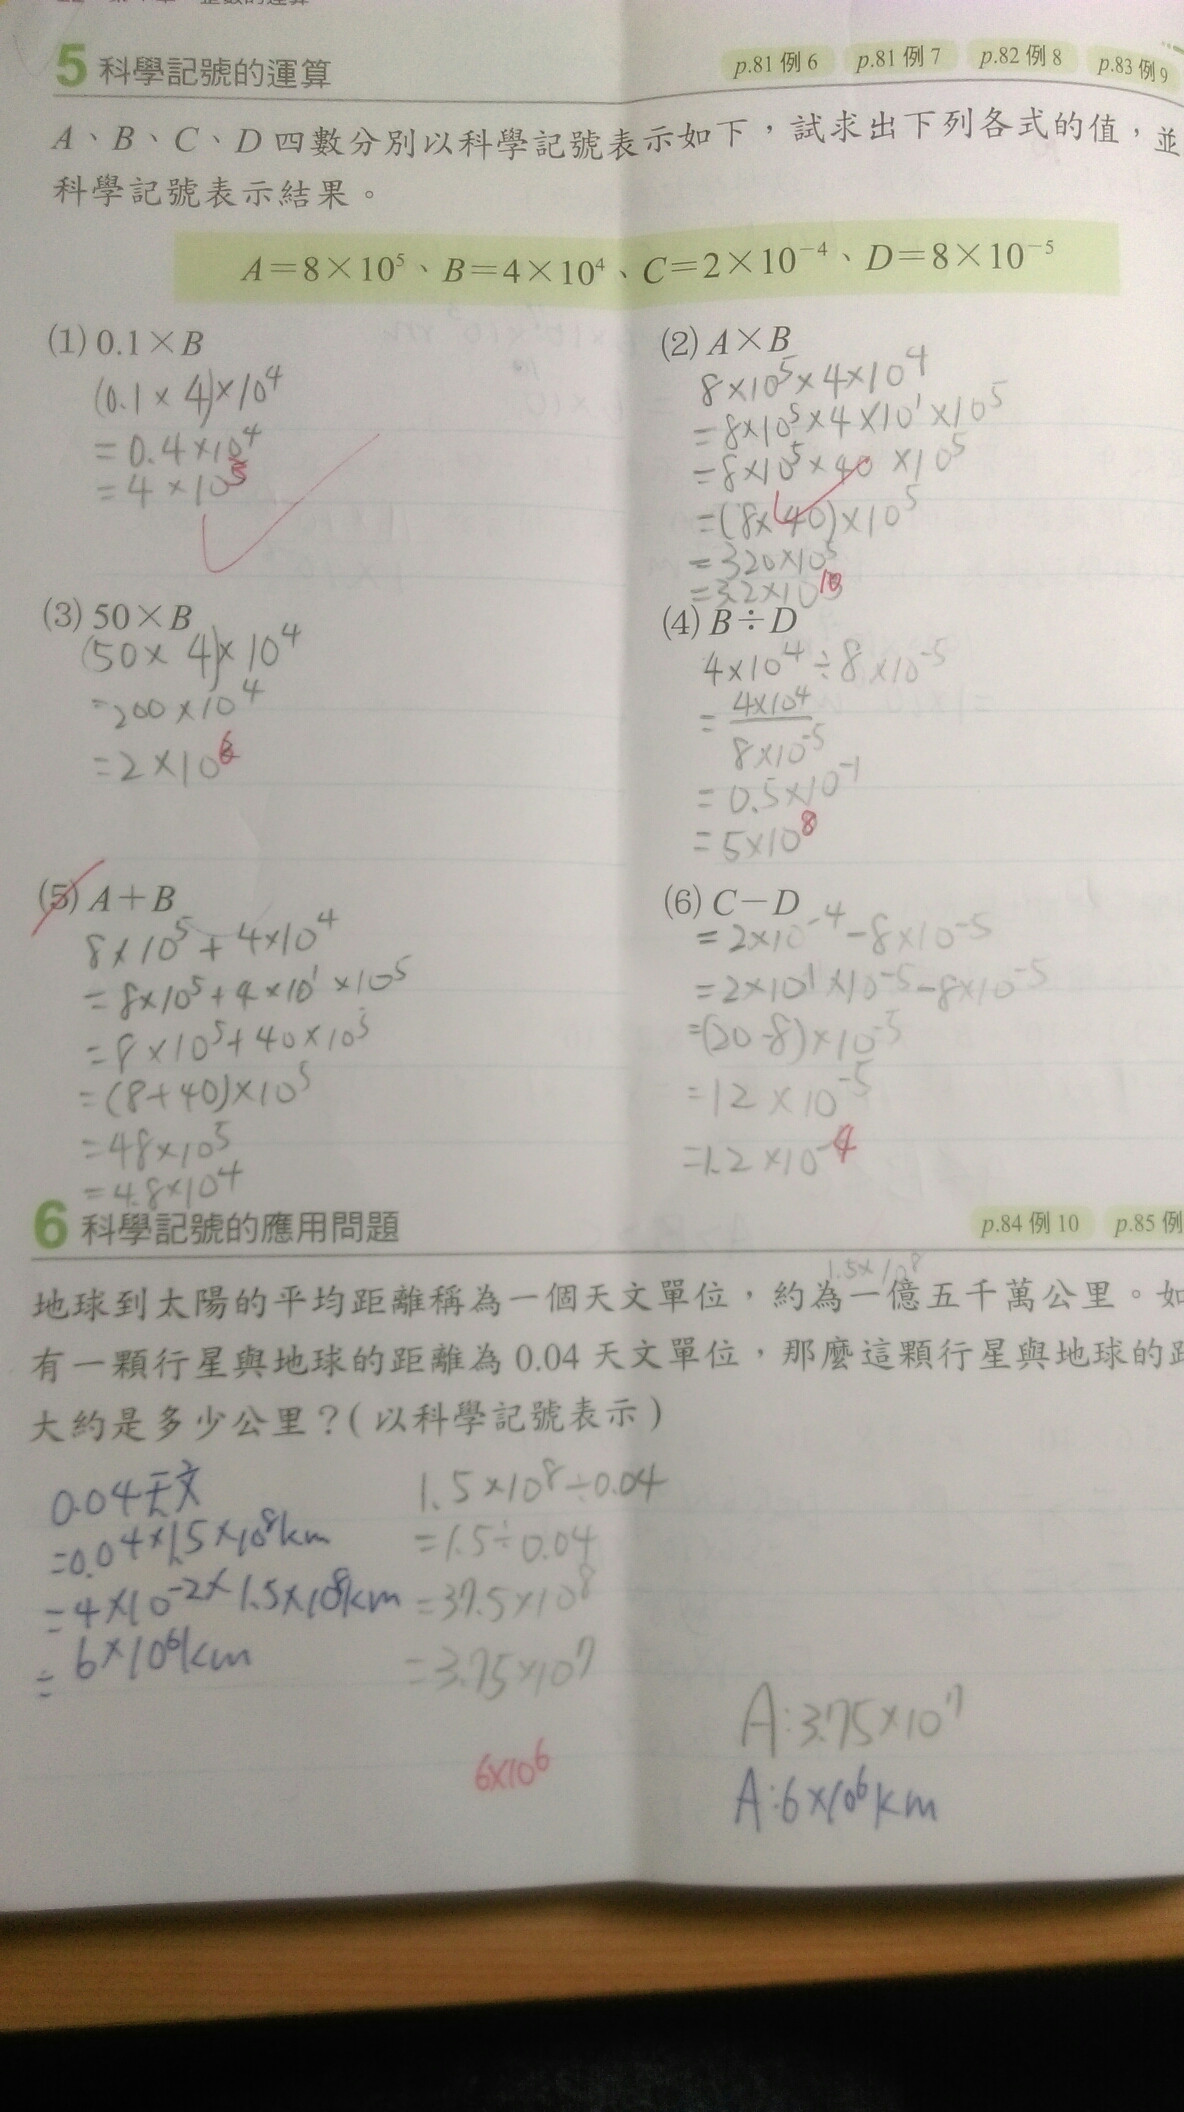 5 科學記號的運算 p.81 例 6 p.81 例 7 p.82 例 8 p.83 例 9
A、B、C、D 四數分別以科學記號表示如下，試求出下列各式的值，並
科學記號表示結果。
A=8×10⁵、B=4×10⁴、C=2×10⁻⁴、D=8×10⁻⁵
(1) 0.1×B
(0.1×4)×10⁴
=0.4×10⁴
=4×10³
(2) A×B
8×10⁵×4×10⁴
=8×10⁵×4×10¹×10⁵
=8×10⁵×40×10⁵
=(8×40)×10⁵
=320×10⁵
=3.2×10¹⁰
(3) 50×B
(50×4)×10⁴
=200×10⁴
=2×10⁶
(4) B÷D
4×10⁴÷8×10⁻⁵
=4×10⁴
8×10⁻⁵
=0.5×10⁻¹
=5×10⁸
(5) A+B
8×10⁵+4×10⁴
=8×10⁵+4×10¹×10⁵
=8×10⁵+40×10⁵
=(8+40)×10⁵
=48×10⁵
=4.8×10⁴
(6) C-D
=2×10⁻⁴-8×10⁻⁵
=2×10¹×10⁻⁵-8×10⁻⁵
=(20-8)×10⁻⁵
=12×10⁻⁵
=1.2×10⁻⁴
6 科學記號的應用問題 p.84 例 10 p.85 例
1.5×10⁸
地球到太陽的平均距離稱為一個天文單位，約為一億五千萬公里。如
有一顆行星與地球的距離為 0.04 天文單位，那麼這顆行星與地球的距
大約是多少公里？(以科學記號表示)
0.04天文
=0.04×1.5×10⁸km
=4×10⁻²×1.5×10⁸km
=6×10⁶km
1.5×10⁸÷0.04
=1.5÷0.04
=37.5×10⁸
=3.75×10⁷
6×10⁶
A:3.75×10⁷
A:6×10⁶km